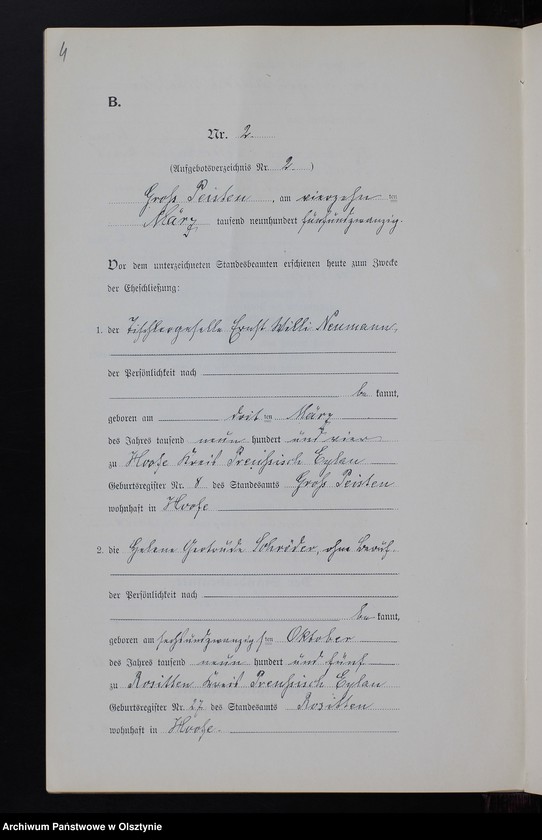 4
B.
Nr. 2
(Aufgebotsverzeichnis Nr. 2)
Groß Peisten, am vierzehn ten
März tausend neunhundert fünfundzwanzig.
Vor dem unterzeichneten Standesbeamten erschienen heute zum Zwecke
der Eheschließung:
1. der Tischlergeselle Ernst Willi Neumann,
der Persönlichkeit nach
be kannt,
geboren am drit ten März
des Jahres tausend neun hundert und vier
zu Hoofe Kreis Preußisch Eylau
Geburtsregister Nr. 8 des Standesamts Groß Peisten
wohnhaft in Hoofe
2. die Helene Gertrude Schröder, ohne Beruf.
der Persönlichkeit nach
be kannt,
geboren am sechsundzwanzigs ten Oktober
des Jahres tausend neun hundert und fünf
zu Rositten Kreis Preußisch Eylau
Geburtsregister Nr. 27 des Standesamts Rositten
wohnhaft in Hoofe.
Archiwum Państwowe w Olsztynie